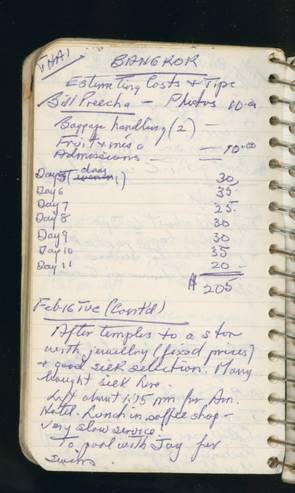 THAI
BANGKOK
Estimating Costs & Tips
Bill Preecha - Photos 10.00
Baggage handling (2) —
Fruit & misc — 10.00
Admissions —
Day 5 (1) 30
Day 6 35
Day 7 25
Day 8 30
Day 9 30
Day 10 35
Day 11 20
$ 205
Feb 16 Tue (Cont'd)
After temples to a store
with jewellry (fixed prices)
& good silk selection. Many
bought silk here.
Left about 1:15 pm for Am.
Hotel. Lunch in coffee shop -
very slow service.
To pool with Jay for
swim